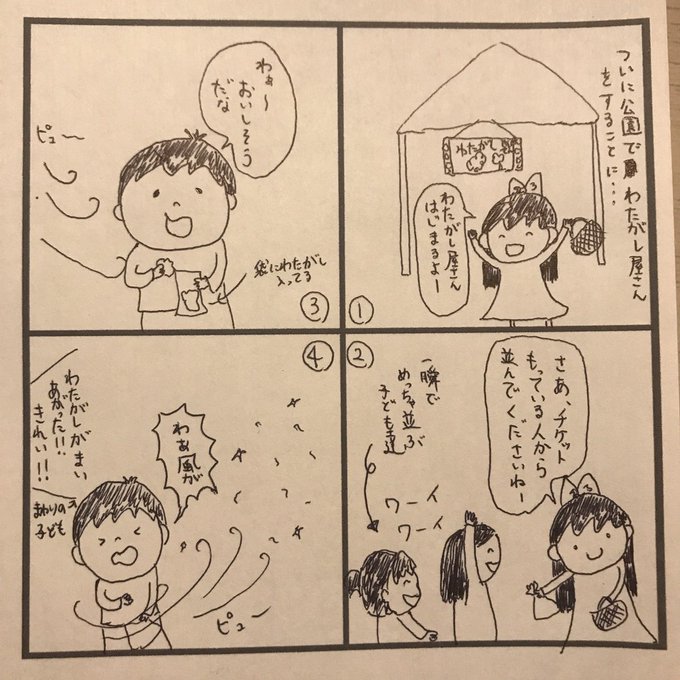 ついに公園でわたがし屋さん
をすることに・・・
わたがし
わたがし屋さん
はじまるよー
①
②
さあ、チケット
もっている人から
並んでくださいねー
一瞬で
めっちゃ並ぶ
子ども達
ワーイ
ワーイ
わぁ〜
おいしそう
だな
ピュー
袋にわたがし
入ってる
③
④
わぁ風が
ピュー
わたがしがまい
あがった!!
きれい!!
まわりの
子ども